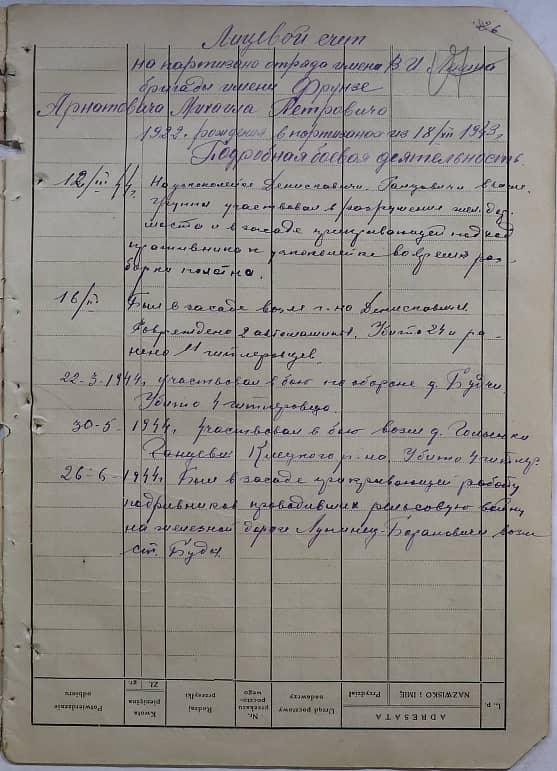 26
Лицевой счет
на партизана отряда имени В. И.
бригады имени Фрунзе
Арнатовича Михаила Петровича
1922 г. рождения в партизанах из 18/VII 1943 г.
Подробная боевая деятельность.
12/III 44 г. На узкоколейке Денисковичи - Ганцевичи в составе
группы участвовал в разрушении жел. дор.
моста и в засаде прикривающей подход
противника к узкоколейке во время раз-
борки полотна.
16/III Был в засаде возле г-на Денисковичи.
Повреждено 2 автомашины. Убито 24 и ра-
нено 11 гитлеровцев.
22-3-1944 г. участвовал в бою по обороне д. Будчи
Убито 4 гитлеровца.
30-5-1944 г. участвовал в бою возле д.
Ганцевич Клецкого р-на Убито 4 гитлер.
26-6-1944 г. Был в засаде прикривающей работу
подривников проводивших рельсовую войну
на железной дороге Лунинец-Барановичи возле
ст. Буды.
L. p.
ADRESATA
NAZWISKO i IMIĘ
Przydział
Urząd pocztowy
nadawczy
Nr.
przekazu
poczto-
wego
Rodzaj
przesyłki
Kwota
pieniężna
Zł. gr.
Potwierdzenie
odbioru